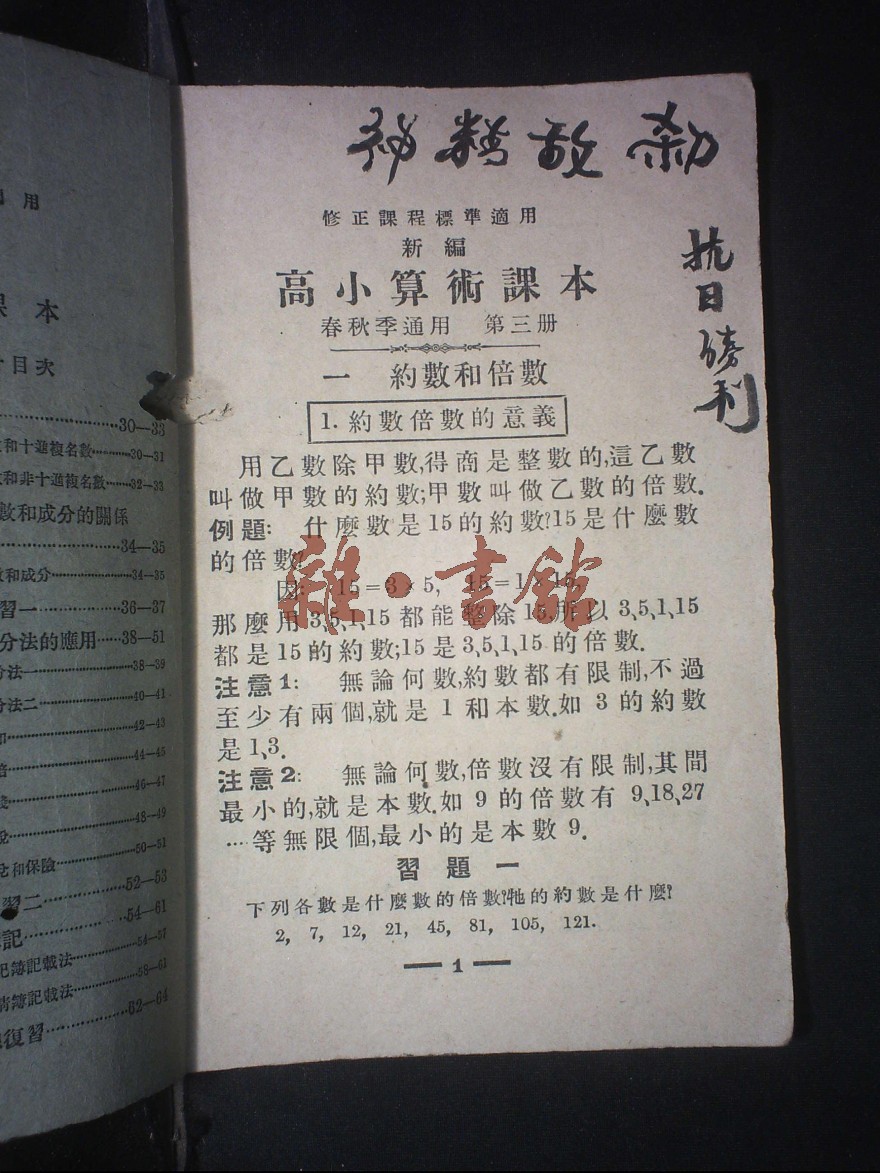 用
課本
目次
30—33
和十進複名數 30—31
和非十進複名數 32—33
數和成分的關係
34—35
和成分 34—35
習一 36—37
分法的應用 38—51
分法一 38—39
分法二 40—41
42—43
44—45
46—47
48—49
和保險 50—51
習二 52—53
記 54—61
記簿記載法 54—57
清簿記載法 58—61
復習 62—64
殺敵
抗日勝利
修正課程標準適用
新編
高小算術課本
春秋季通用 第三册
一 約數和倍數
1. 約數倍數的意義
用乙數除甲數,得商是整數的,這乙數
叫做甲數的約數;甲數叫做乙數的倍數.
例題: 什麼數是15的約數?15是什麼數
的倍數?
因: 15=3×5, 15=1×15,
那麼用3,5,1,15都能整除15,所以3,5,1,15
都是15的約數;15是3,5,1,15的倍數.
注意1: 無論何數,約數都有限制,不過
至少有兩個,就是1和本數.如3的約數
是1、3.
注意2: 無論何數,倍數沒有限制,其間
最小的,就是本數.如9的倍數有9、18、27
…等無限個,最小的是本數9.
習題一
下列各數是什麼數的倍數?牠的約數是什麼?
2, 7, 12, 21, 45, 81, 105, 121.
— 1 —
雜·書館